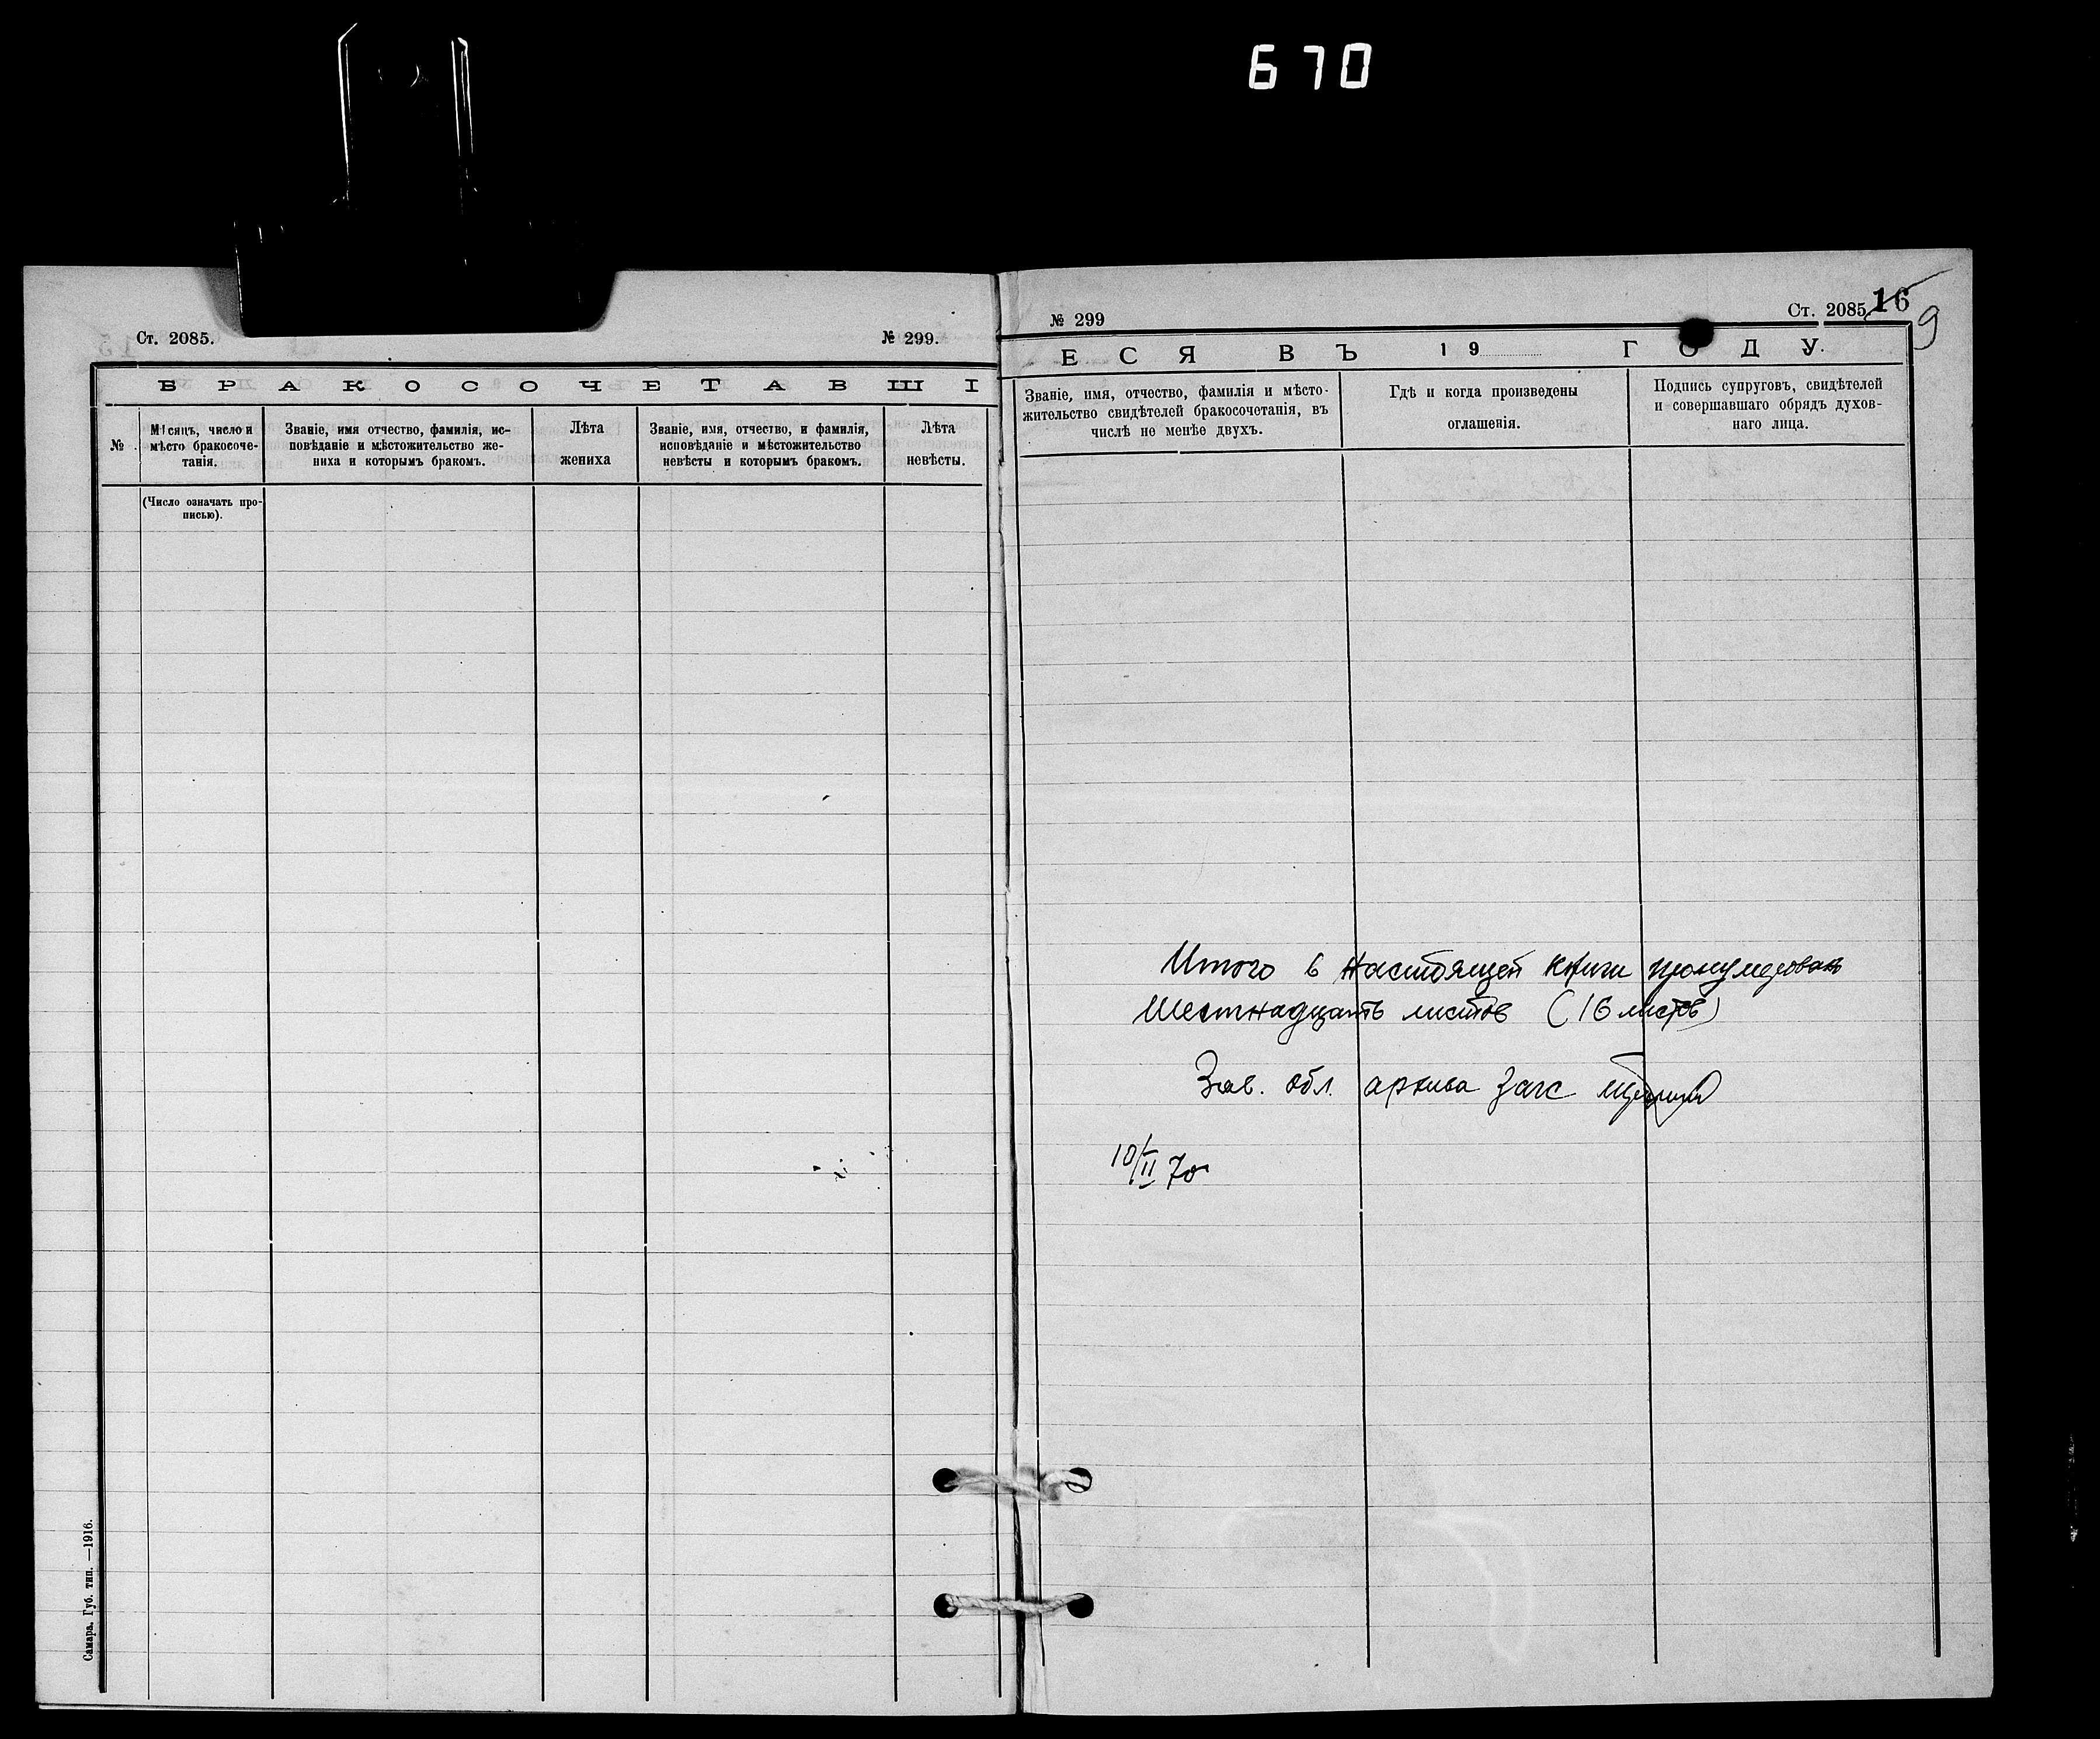 670
Ст. 2085.
№ 299.
БРАКОСОЧЕТАВШІ
№
Мѣсяцъ, число и
мѣсто бракосоче-
танія.
Званіе, имя отчество, фамилія, ис-
повѣданіе и мѣстожительство же-
ниха и которымъ бракомъ.
Лѣта
жениха
Званіе, имя, отчество, и фамилія,
исповѣданіе и мѣстожительство
невѣсты и которымъ бракомъ.
Лѣта
невѣсты.
(Число означать про-
писью).
Самара. Губ. тип. —1916.
№ 299
Ст. 2085
16
9
ЕСЯ ВЪ 19 ГОДУ.
Званіе, имя, отчество, фамилія и мѣсто-
жительство свидѣтелей бракосочетанія, въ
числѣ не менѣе двухъ.
Гдѣ и когда произведены
оглашенія.
Подпись супруговъ, свидѣтелей
и совершавшаго обрядъ духов-
наго лица.
Итого в настоящей книги пронумерован
Шестнадцать листов (16 листов)
Зав. обл. архива загс
10/II 70